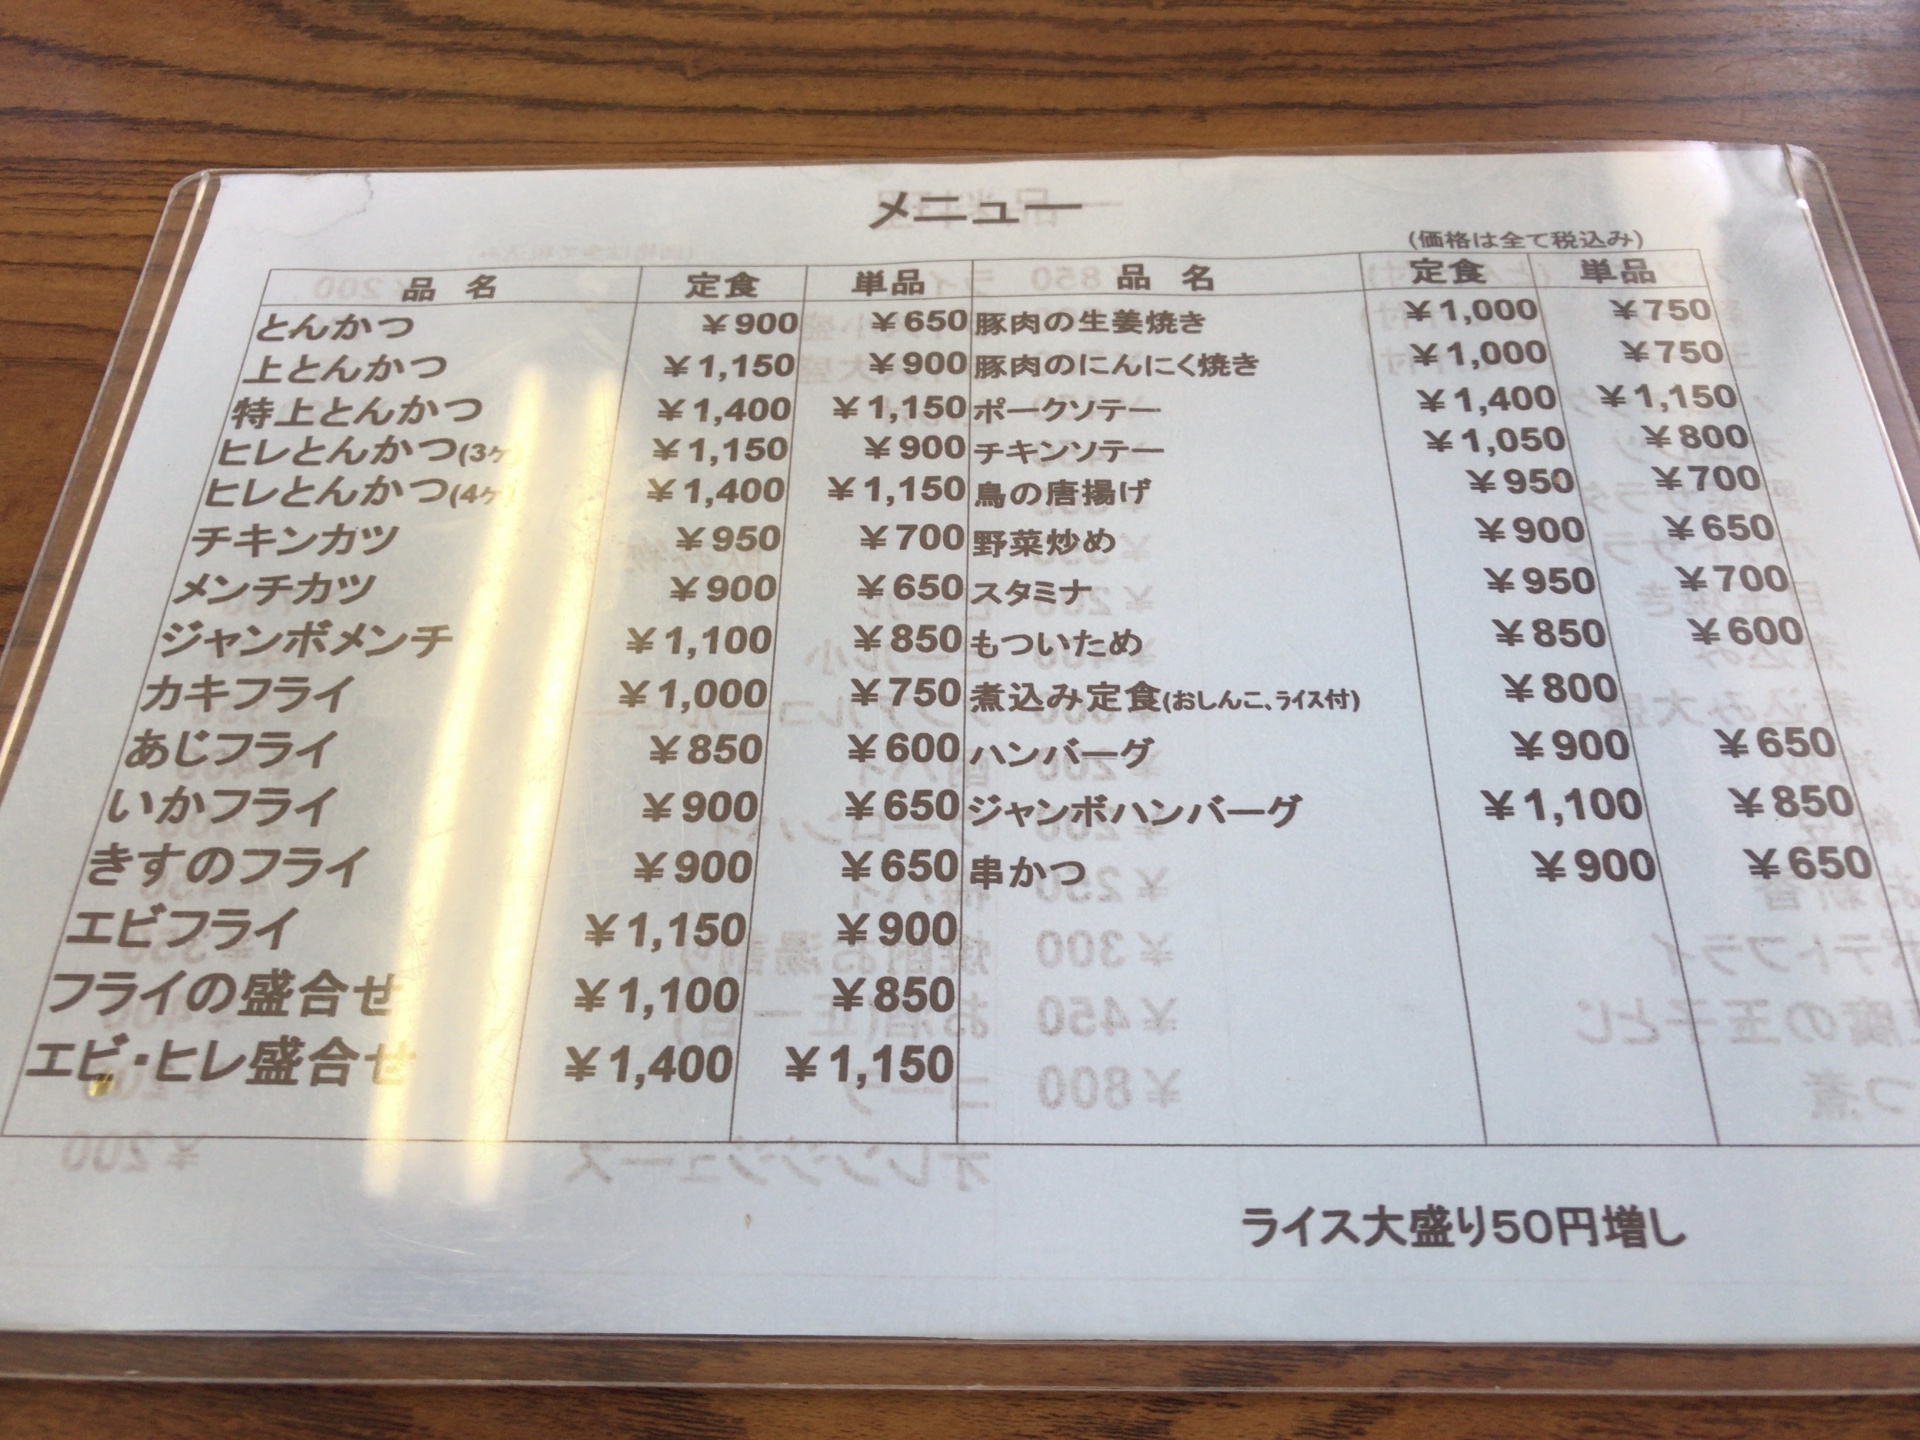 メニュー
(価格は全て税込み)
品 名 定食 単品 品 名 定食 単品
とんかつ ¥900 ¥650 豚肉の生姜焼き ¥1,000 ¥750
上とんかつ ¥1,150 ¥900 豚肉のにんにく焼き ¥1,000 ¥750
特上とんかつ ¥1,400 ¥1,150 ポークソテー ¥1,400 ¥1,150
ヒレとんかつ(3ヶ) ¥1,150 ¥900 チキンソテー ¥1,050 ¥800
ヒレとんかつ(4ヶ) ¥1,400 ¥1,150 鳥の唐揚げ ¥950 ¥700
チキンカツ ¥950 ¥700 野菜炒め ¥900 ¥650
メンチカツ ¥900 ¥650 スタミナ ¥950 ¥700
ジャンボメンチ ¥1,100 ¥850 もついため ¥850 ¥600
カキフライ ¥1,000 ¥750 煮込み定食(おしんこ、ライス付) ¥800
あじフライ ¥850 ¥600 ハンバーグ ¥900 ¥650
いかフライ ¥900 ¥650 ジャンボハンバーグ ¥1,100 ¥850
きすのフライ ¥900 ¥650 串かつ ¥900 ¥650
エビフライ ¥1,150 ¥900
フライの盛合せ ¥1,100 ¥850
エビ・ヒレ盛合せ ¥1,400 ¥1,150
ライス大盛り50円増し